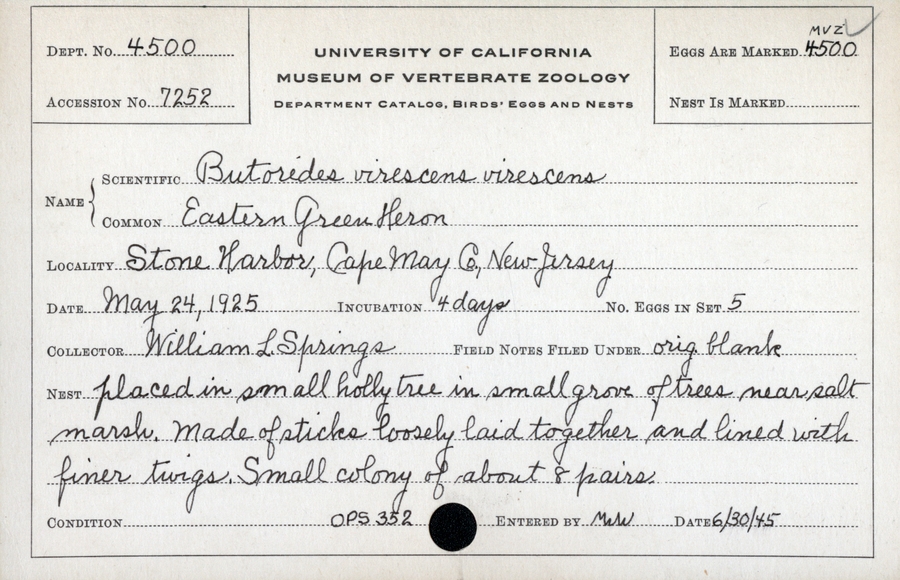 DEPT. No. 4500
ACCESSION No. 7252
UNIVERSITY OF CALIFORNIA
MUSEUM OF VERTEBRATE ZOOLOGY
DEPARTMENT CATALOG, BIRDS' EGGS AND NESTS
MVZ
EGGS ARE MARKED 4500
NEST IS MARKED
NAME
SCIENTIFIC Butorides virescens virescens
COMMON Eastern Green Heron
LOCALITY Stone Harbor, Cape May Co, New Jersey
DATE May 24, 1925 INCUBATION 4 days No. EGGS IN SET 5
COLLECTOR William L. Springs FIELD NOTES FILED UNDER orig. blank
NEST placed in small holly tree in small grove of trees near salt
marsh. Made of sticks loosely laid together and lined with
finer twigs. Small colony of about 8 pairs.
CONDITION OPS 352 ENTERED BY DATE 6/30/45